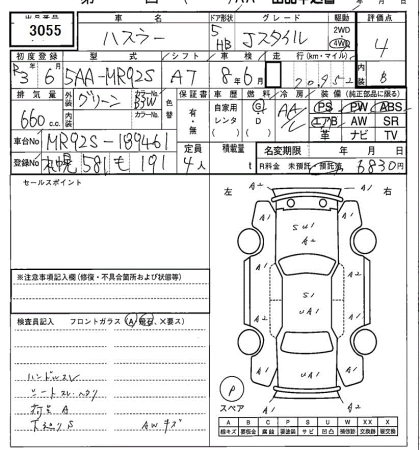 出品番号 車名 ドア形状 グレード 駆動 評価点
3055 ハスラー 5 HB Jスタイル 2WD 4WD 4
初度登録 型式 シフト 車検 走行(km・マイル) 内装
R3年6月 5AA-MR92S AT 8年6月 70,952 B
排気量 外装 グリーン カラーNo. B3W 色替 保証書 車歴 燃料 冷房 装備(純正部品に限る)
660cc 内装 カラーNo. 有・無 自家用 レンタ ( ) G D ( ) AAC PS PW ABS
エアB AW SR
革 ナビ TV
車台No MR92S-189461 定員 積載量 名変期限 年 月 日
登録No 札幌 581 も 191 4人 t R料金 未預託・預託済 6830円
セールスポイント
左 右
※注意事項記入欄(修復・不具合箇所および状態等)
検査員記入 フロントガラス(A,飛石,X要ス)
ハンドルスレ
シートスレ・ヘタリ
荷室A
下廻りS AWキズ
A2 A1 A2 A1
SUA1
S1
UA1
UA1
P
スペア
A B C P S U W X XX
線キズ 要板金 腐蝕 要塗装 サビ 凹凸 補修跡 交換跡 要交換